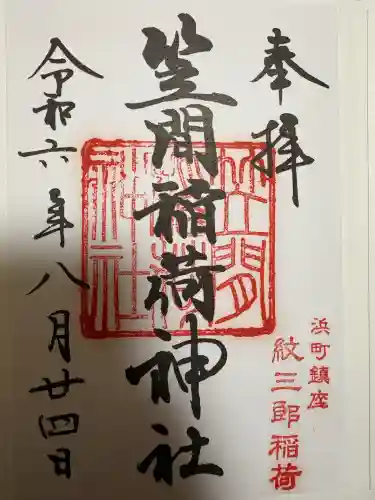 奉拝
浜町鎮座
紋三郎稲荷
笠間稲荷神社
令和六年八月廿四日